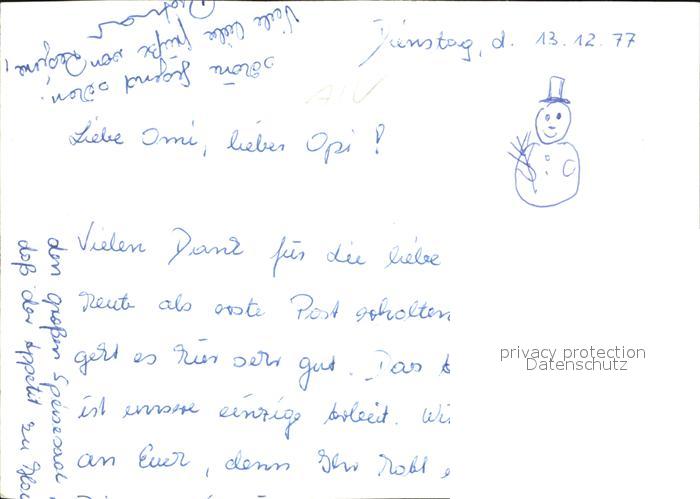 Dienstag, d. 13.12.77
Liebe Omi, lieber Opi!
Vielen Dank für die liebe
heute als erste Post erhalten
geht es hier sehr gut. Das
ist unsere einzige Arbeit. Wi
an Euch, denn Ihr habt
den großen Speisesaal
daß der Appetit zu
schöne Gegend
Viele liebe Grüße von Regine,
privacy protection
Datenschutz